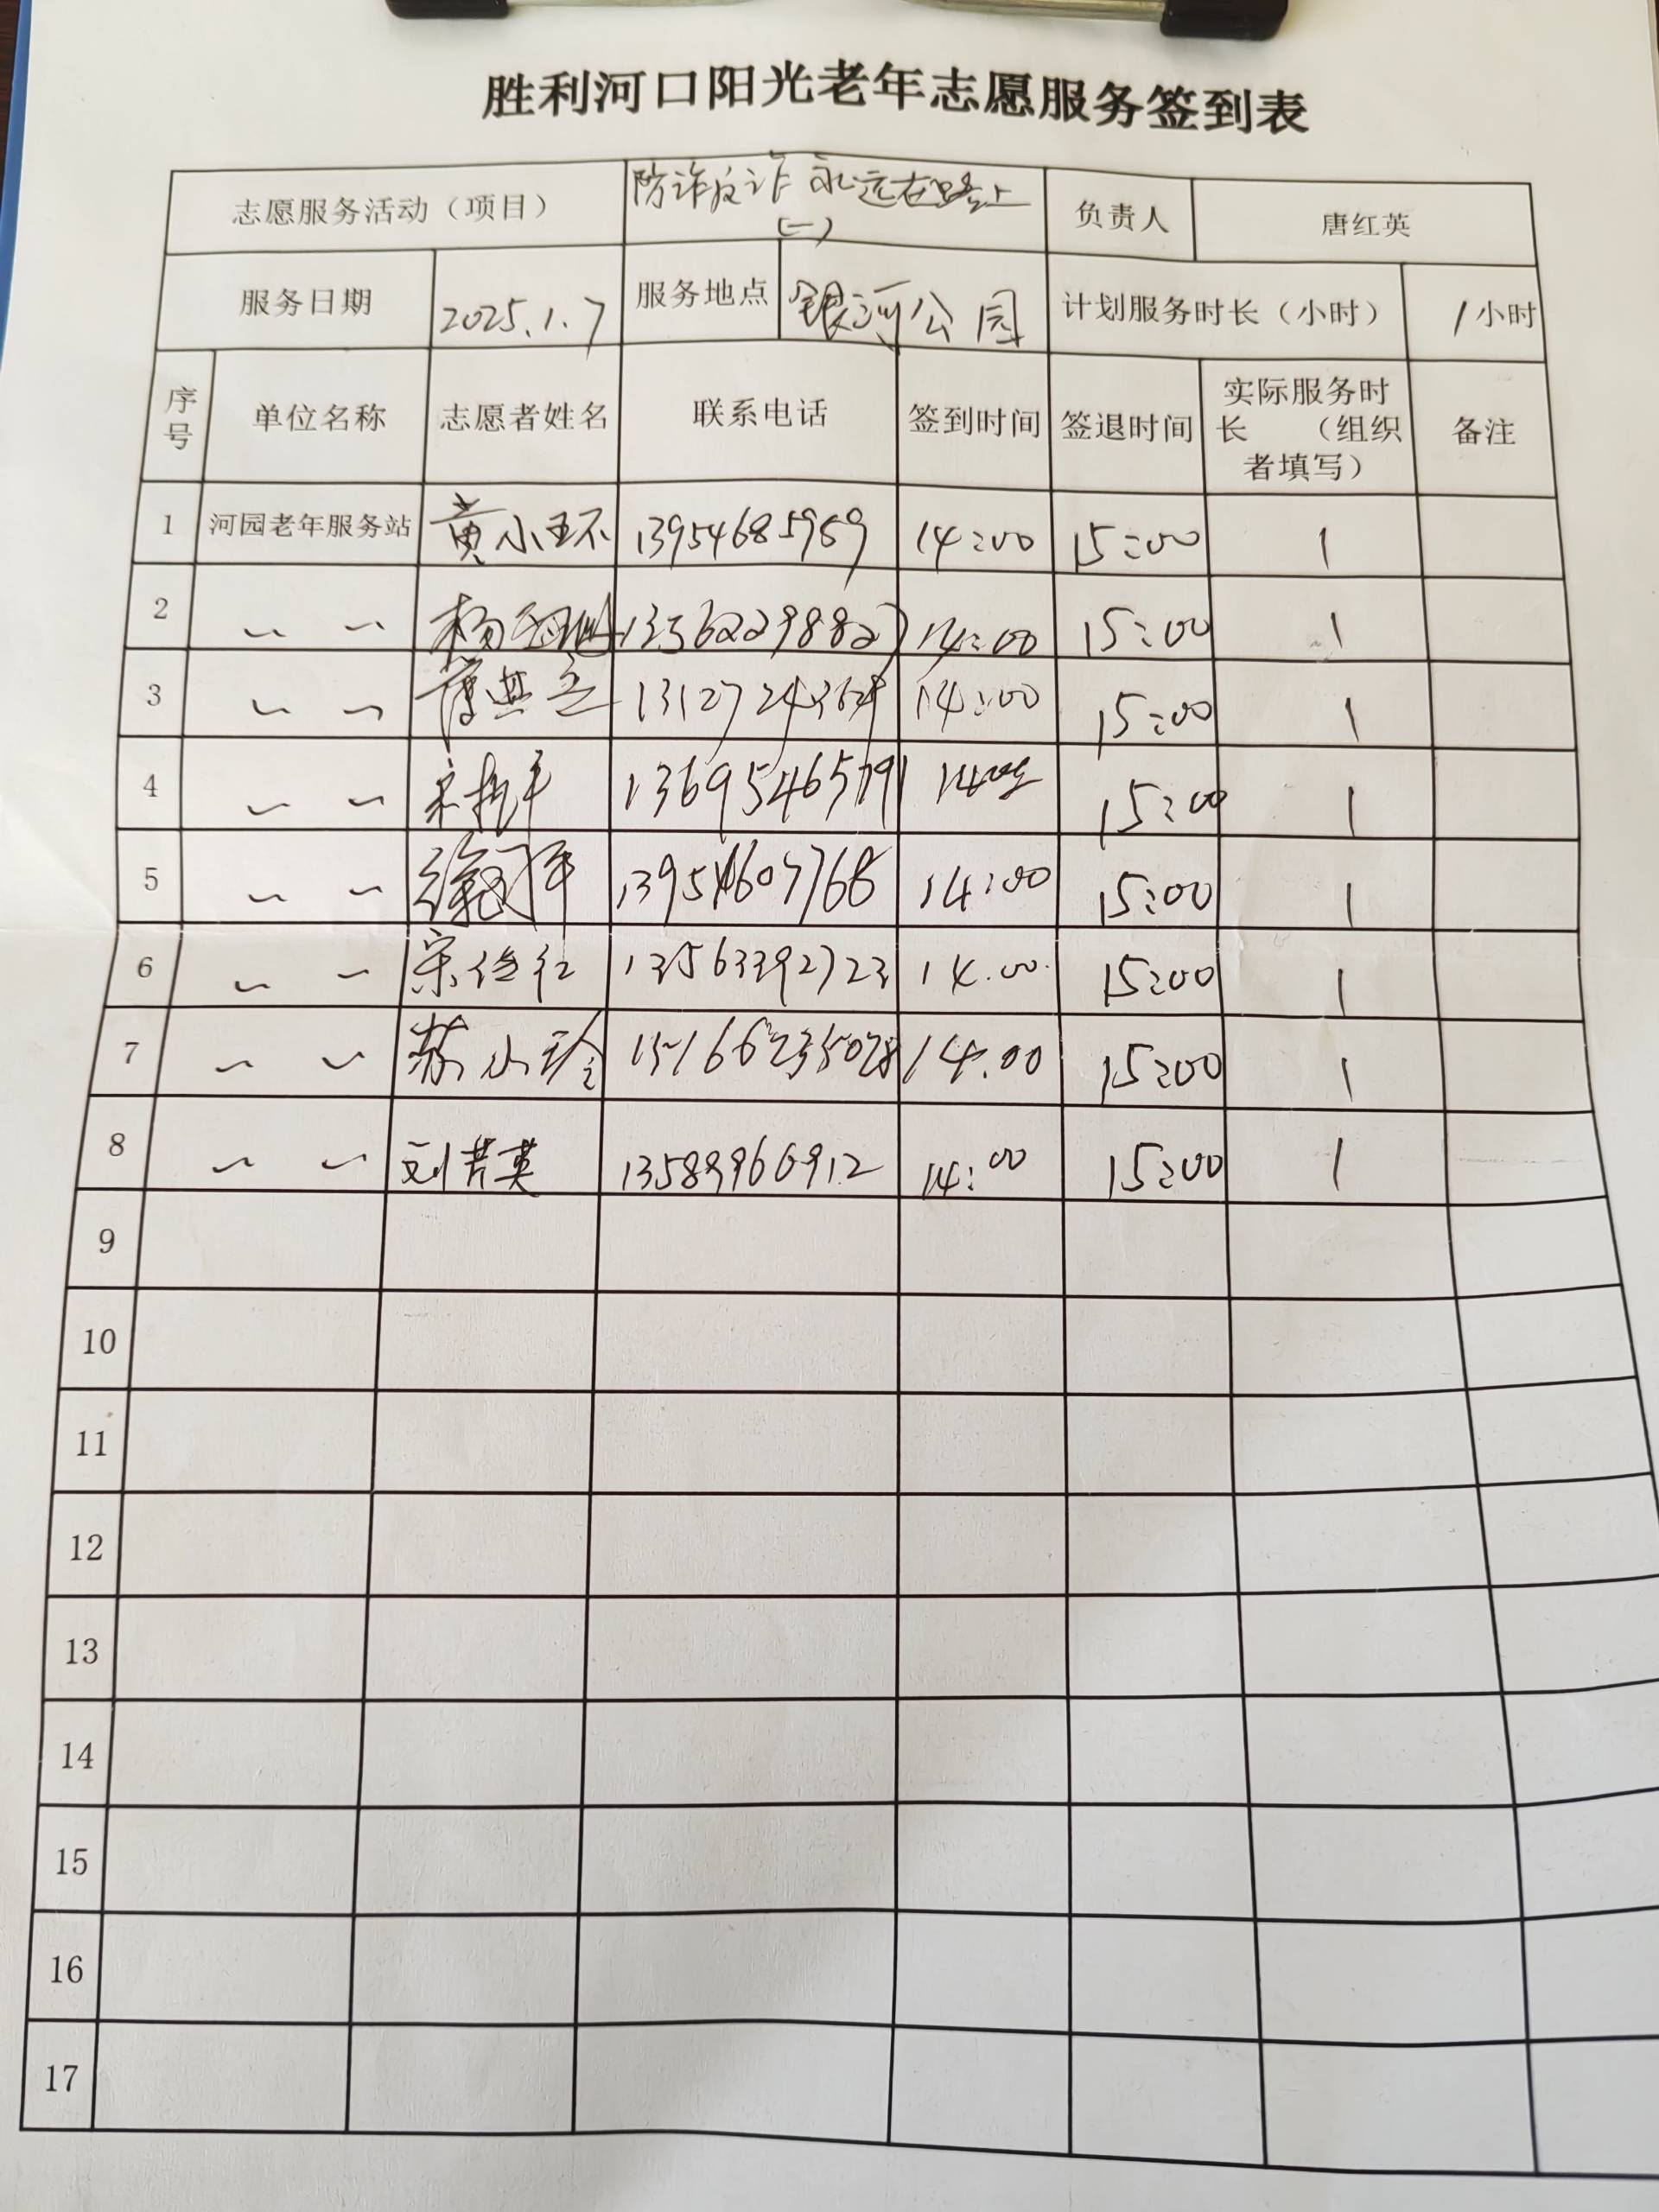 胜利河口阳光老年志愿服务签到表
志愿服务活动（项目） 防诈反诈 永远在路上（一） 负责人 唐红英
服务日期 2025.1.7 服务地点 银河公园 计划服务时长（小时） 1小时
序号 单位名称 志愿者姓名 联系电话 签到时间 签退时间 实际服务时长 （组织者填写） 备注
1 河园老年服务站 黄小环 13954685969 14:00 15:00 1
2 〃 〃 13562298827 14:00 15:00 1
3 〃 〃 14:00 15:00 1
4 〃 〃 15:00 1
5 〃 〃 14:00 15:00 1
6 〃 〃 13563392723 14.00. 15:00 1
7 〃 〃 苏小玲 14.00 15:00 1
8 〃 〃 13589966912 14:00 15:00 1
9
10
11
12
13
14
15
16
17